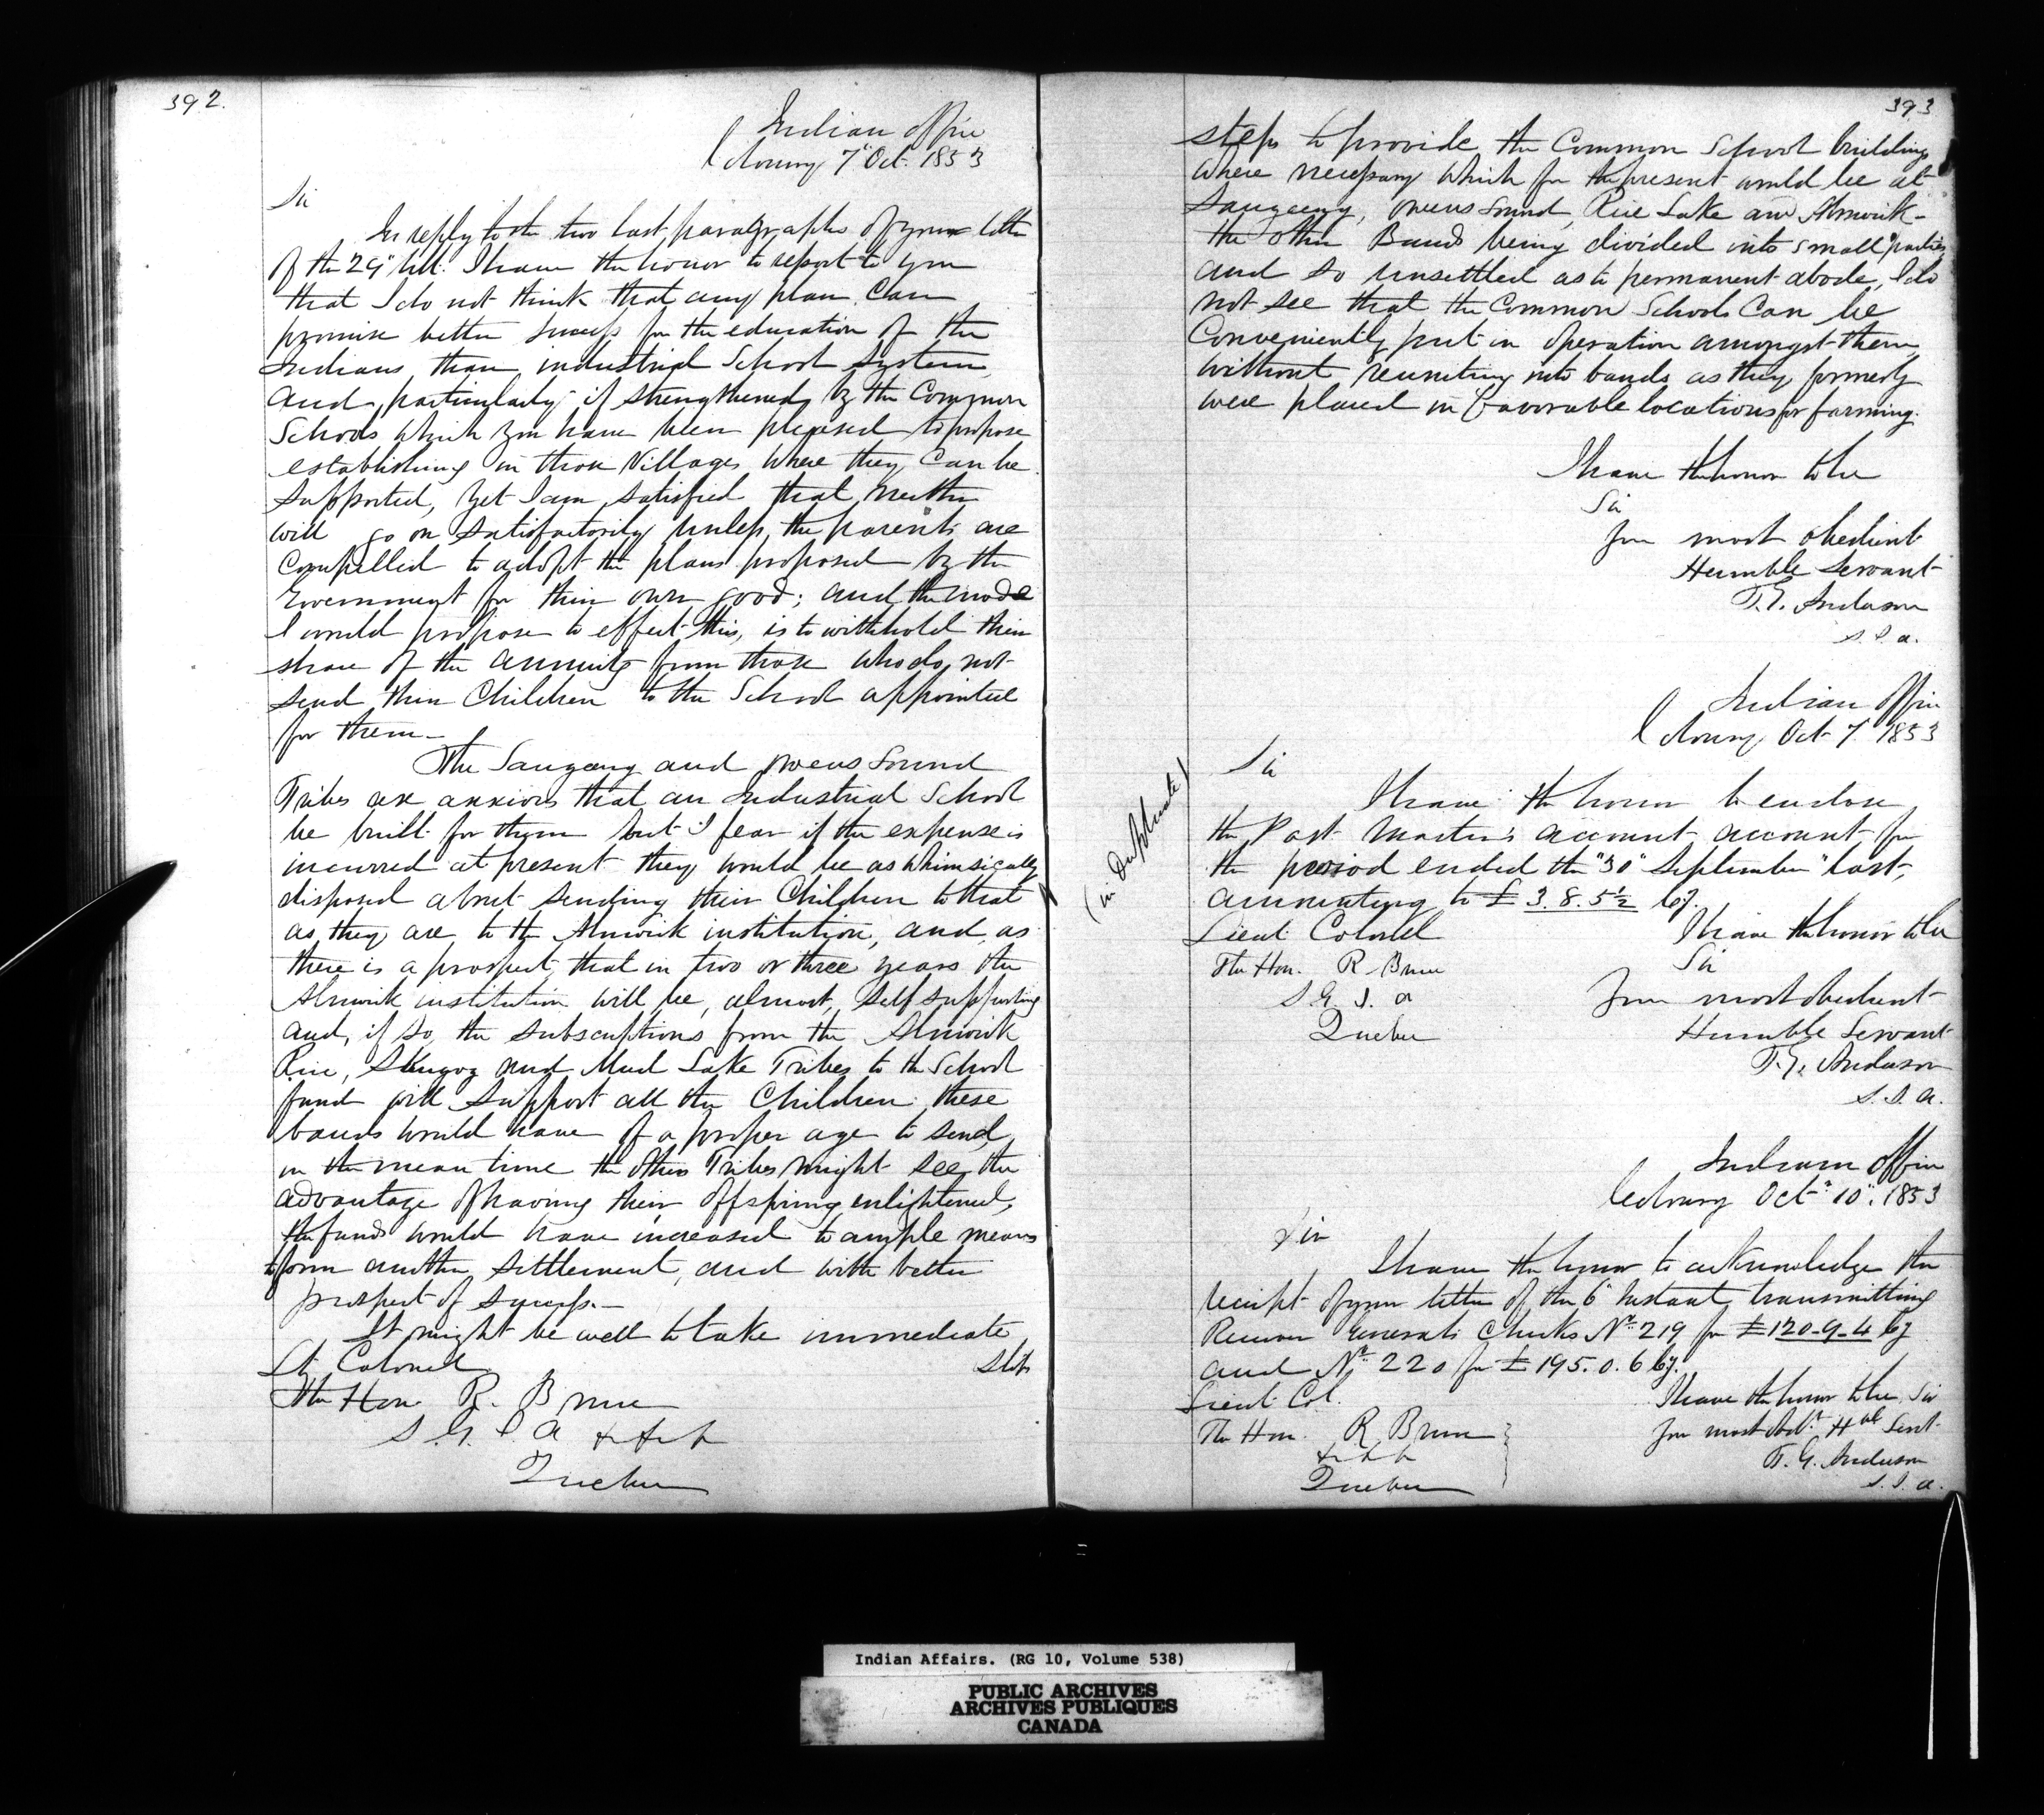 392.
Indian Office
Cobourg 7" Oct. 1853
Sir
In reply to the two last paragraphs of your letter
of the 29" Ult. I have the honor to report to you
that I do not think that any plan can
promise better success for the education of the
Indians, than industrial School System,
and, particularly if strengthened by the Common
Schools which you have been pleased to propose
establishing in those Villages where they can be
supported, yet I am satisfied that neither
will go on satisfactorily unless the parents are
Compelled to adopt the plans proposed by the
Government for their own good; and the mode
I would propose to effect this, is to withhold their
share of the annuity from those who do not
send their Children to the School appointed
for them—
The Saugeeng and Owens Sound
Tribes are anxious that an Industrial School
be built for them but I fear if the expense is
incurred at present they would be as whimsically
disposed about sending their Children to that
as they are to the Alnwick institution, and as
there is a prospect, that in two or three years the
Alnwick institution will be, almost, self supporting
and, if so, the subscriptions from the Alnwick
Rice, Skugog and Mud Lake Tribes to the School
fund will support all the Children these
bands would have of a proper age to send,
in the mean time the other Tribes might see the
advantage of having their offspring enlightened,
the funds would have increased to ample means
to form another settlement, and with better
prospect of success.—
It might be well to take immediate
Lt Colonel
steps
The Hon. R. Bruce
S. G. I. A
Quebec
393
steps to provide the Common School buildings
where necessary which for the present would be at
Saugeeng, Owens Sound, Rice Lake and Alnwick—
the other Bands being divided into small parties
and so unsettled as to permanent abode, I do
not see that the Common Schools can be
Conveniently put in operation amongst them,
without reuniting into bands as they formerly
were placed in favorable locations for farming.
I have the honor to be
Sir
Your most obedient
Humble Servant
T. G. Anderson
S. I. A.
Indian Office
Cobourg Oct 7. 1853
Sir
(in Duplicate)
I have the honor to enclose
the Post Master's account account for
the period ended the "30" September" last,
amounting to £ 3. 8. 5½ Cy.
Lieut Colonel
I have the honor to be
The Hon. R. Bruce
Sir
S. G. I. A
Your most obedient
Quebec
Humble Servant
T. G. Anderson
S. I. A.
Indian Office
Cobourg Oct. 10". 1853
Sir
I have the honor to acknowledge the
receipt of your letter of the 6" Instant transmitting
Receiver Generals Checks No. 219 for £120-9-4 Cy
and No. 220 for £195. 0. 6 Cy.
Lieut Col.
I have the honor to be Sir
The Hon. R Bruce
Your most Obt. Hble Servt
Quebec
T. G. Anderson
S. I. A.
Indian Affairs. (RG 10, Volume 538)
PUBLIC ARCHIVES
ARCHIVES PUBLIQUES
CANADA